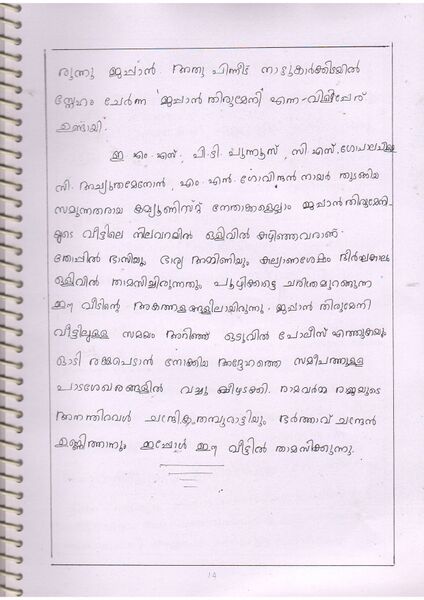 രുന്നു മുച്ചാൻ. അതു പിന്നീട് നാട്ടുകാർക്കിടയിൽ
സ്നേഹം ചേർന്ന 'മുച്ചാൻ തിരുമേനി' എന്ന വിളിപ്പേര്
ഉണ്ടായി.
ഇ.എം.എസ്, പി.ടി. പുന്നൂസ്, സി.എസ്. ഗോപാലപിള്ള
സി. അച്യുതമേനോൻ, എം.എൻ. ഗോവിന്ദൻ നായർ തുടങ്ങിയ
സമുന്നതരായ കമ്യൂണിസ്റ്റ് നേതാക്കളെല്ലാം മുച്ചാൻ തിരുമേനി-
യുടെ വീട്ടിലെ നിലവറയിൽ ഒളിവിൽ കഴിഞ്ഞവരാണ്.
തോപ്പിൽ ഭാസിയും ഭാര്യ അമ്മിണിയും കല്യാണശേഷം ദീർഘകാലം
ഒളിവിൽ താമസിച്ചിരുന്നതും പൂഴിക്കാട്ടെ ചരിത്രമുറങ്ങുന്ന
ഈ വീടിന്റെ അകത്തളങ്ങളിലായിരുന്നു. മുച്ചാൻ തിരുമേനി
വീട്ടിലുള്ള സമയം അറിഞ്ഞ് ഒടുവിൽ പോലീസ് എത്തുകയും
ഓടി രക്ഷപെടാൻ നോക്കിയ അദ്ദേഹത്തെ സമീപത്തുള്ള
പാടശേഖരങ്ങളിൽ വച്ചു കീഴടക്കി. രാമവർമ്മ രാജയുടെ
അനന്തിരവൾ ചന്ദ്രിക തമ്പുരാട്ടിയും ഭർത്താവ് ചന്ദ്രൻ
ഉണ്ണിത്താനും ഇപ്പോൾ ഈ വീട്ടിൽ താമസിക്കുന്നു.
14